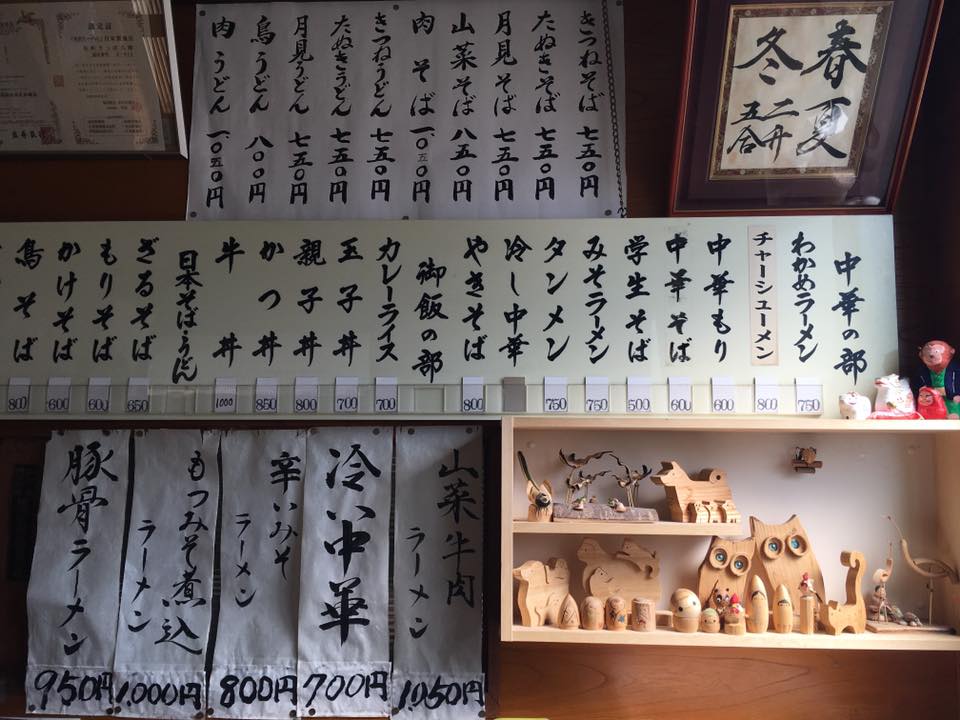 春夏
冬
二升
五合
きつねそば 七五〇円
たぬきそば 七五〇円
月見そば 七五〇円
山菜そば 八五〇円
肉そば 一〇五〇円
きつねうどん 七五〇円
たぬきうどん 七五〇円
月見うどん 七五〇円
鳥うどん 八〇〇円
肉うどん 一〇五〇円
中華の部
わかめラーメン 750
チャーシューメン 800
中華もり 600
中華そば 600
学生そば 500
みそラーメン 750
タンメン 750
冷し中華
やきそば 800
御飯の部
カレーライス 700
玉子丼 700
親子丼 800
かつ丼 850
牛丼 1000
日本そばうどん
ざるそば 650
もりそば 600
かけそば 600
鳥そば 800
山菜牛肉
ラーメン
1.050円
冷い中華
700円
辛いみそ
ラーメン
800円
もつみそ煮込
ラーメン
1.000円
豚骨ラーメン
950円